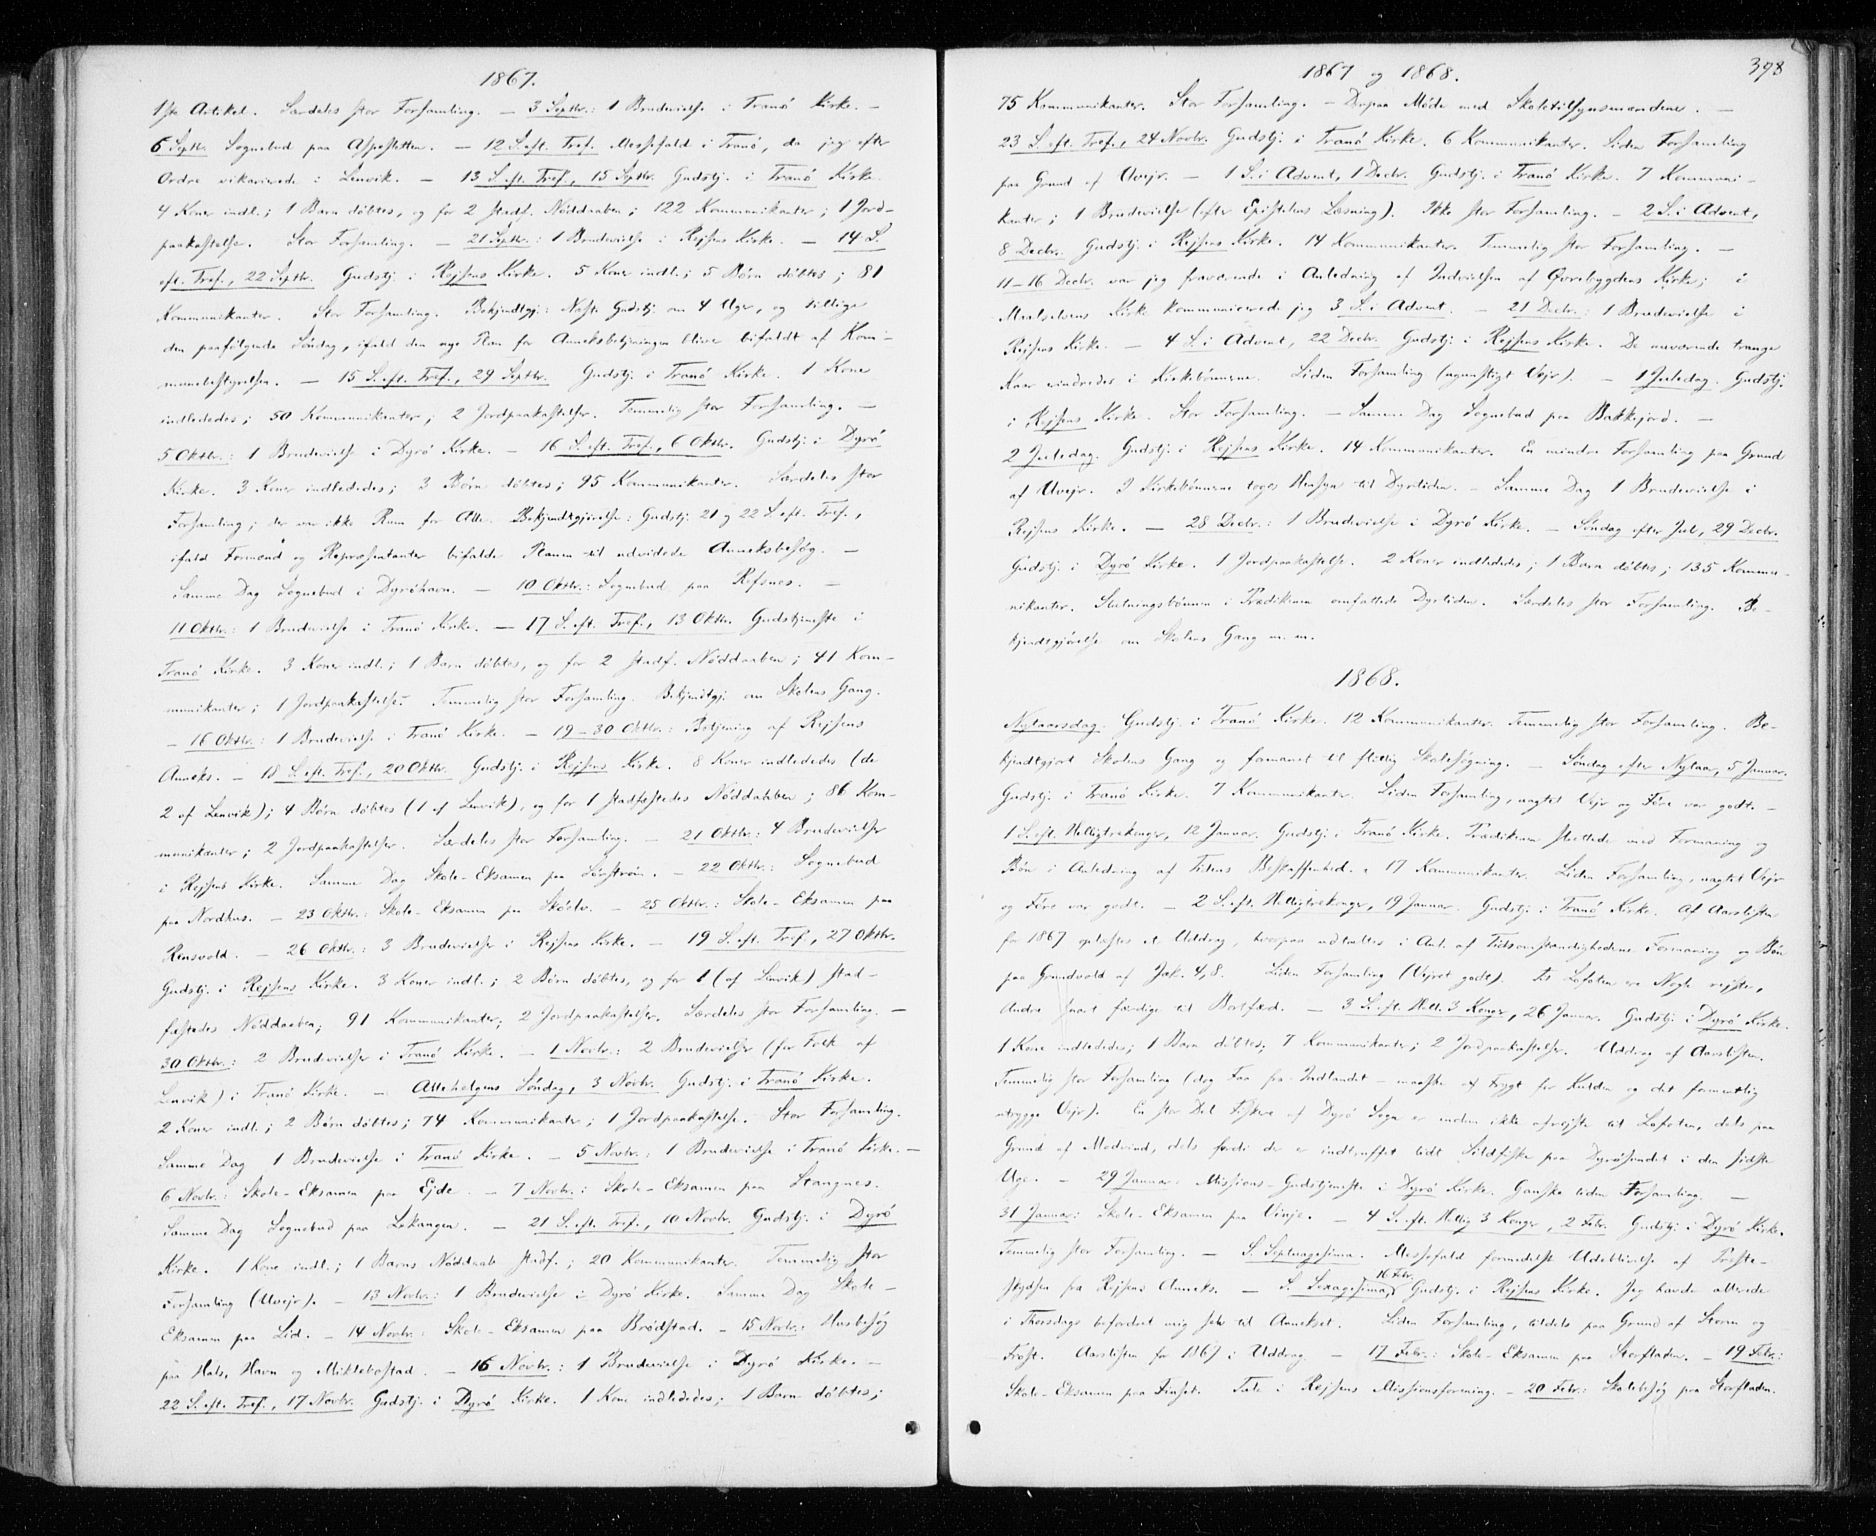 1867.
1ste Artikel. Særdeles stor Forsamling. — 3 Septbr.: 1 Brudevielse i Tranö Kirke. —
6 Septbr. Sognebud paa . — 12 S. eft. Tref. Messefald i Tranö, da jeg efter
Ordre vikarierede i Lenvik. — 13 S. eft. Tref., 15 Septbr. Gudstj. i Tranö Kirke.
4 Koner indl.; 1 Barn döbtes, og for 2 stadf. Nöddaaben; 122 Kommunikanter; 1 Jord-
paakastelse. Stor Forsamling. — 21 Septbr.: 1 Brudevielse i Rejsens Kirke. — 14 S.
eft. Tref., 22 Septbr. Gudstj. i Rejsens Kirke. 5 Koner indl.; 5 Börn döbtes; 81
Kommunikanter. Stor Forsamling. Bekjendtgj.: Næste Gudstj. om 4 Uger, og tillige
den paafölgende Söndag, ifald den nye Plan for Anneksbetjeningen bliver bifaldt af Kom-
munebestyrelsen. — 15 S. eft. Tref., 29 Septbr. Gudstj. i Tranö Kirke. 1 Kone
indlededes; 50 Kommunikanter; 2 Jordpaakastelser. Temmelig stor Forsamling. —
5 Oktbr.: 1 Brudevielse i Dyrö Kirke. — 16 S. eft. Tref., 6 Oktbr. Gudstj. i Dyrö
Kirke. 3 Koner indlededes; 3 Börn döbtes; 95 Kommunikanter. Særdeles stor
Forsamling; der var ikke Rum for Alle. Bekjendtgjörelse: Gudstj. 21 og 22 S. eft. Tref.,
ifald Formænd og Repræsentanter bifalde Planen til udvidede Anneksbesög. —
Samme Dag Sognebud i Dyröhavn. — 10 Oktbr.: Sognebud paa Refsnes. —
11 Oktbr.: 1 Brudevielse i Tranö Kirke. — 17 S. eft. Tref., 13 Oktbr. Gudstjeneste i
Tranö Kirke. 3 Koner indl.; 1 Barn döbtes, og for 2 stadf. Nöddaaben; 41 Kom-
munikanter; 1 Jordpaakastelse. Temmelig stor Forsamling. Bekjendtgj. om Skolens Gang.
— 16 Oktbr.: 1 Brudevielse i Tranö Kirke. — 19–30 Oktbr.: Betjening af Rejsens
Anneks. — 18 S. eft. Tref., 20 Oktbr. Gudstj. i Rejsens Kirke. 8 Koner indlededes (de
2 af Lenvik); 4 Börn döbtes (1 af Lenvik), og for 1 stadfæstedes Nöddaaben; 86 Kom-
munikanter; 2 Jordpaakastelser. Særdeles stor Forsamling. — 21 Oktbr.: 4 Brudevielser
i Rejsens Kirke. Samme Dag Skole-Eksamen paa . — 22 Oktbr.: Sognebud
paa Nordhus. — 23 Oktbr.: Skole-Eksamen paa Sköelv. — 25 Oktbr.: Skole-Eksamen paa
. — 26 Oktbr.: 3 Brudevielser i Rejsens Kirke. — 19 S. eft. Tref., 27 Oktbr.
Gudstj. i Rejsens Kirke. 3 Koner indl.; 2 Börn döbtes, og for 1 (af Lenvik) stad-
fæstedes Nöddaaben; 91 Kommunikanter; 2 Jordpaakastelser. Særdeles stor Forsamling. —
30 Oktbr.: 2 Brudevielser i Tranö Kirke. — 1 Novbr.: 2 Brudevielser (for Folk af
Lenvik) i Tranö Kirke. — Allehelgens Söndag, 3 Novbr. Gudstj. i Tranö Kirke.
2 Koner indl.; 2 Börn döbtes; 74 Kommunikanter; 1 Jordpaakastelse. Stor Forsamling.
Samme Dag 1 Brudevielse i Tranö Kirke. — 5 Novbr.: 1 Brudevielse i Tranö Kirke. —
6 Novbr.: Skole-Eksamen paa Ejde. — 7 Novbr.: Skole-Eksamen paa Stangnes.
Samme Dag Sognebud paa Lekangen. — 21 S. eft. Tref., 10 Novbr. Gudstj. i Dyrö
Kirke. 1 Kone indl.; 1 Barns Nöddaab stadf.; 20 Kommunikanter. Temmelig stor
Forsamling (Uvejr). — 13 Novbr.: 1 Brudevielse i Dyrö Kirke. Samme Dag Skole-
Eksamen paa Lid. — 14 Novbr.: Skole-Eksamen paa Brödstad. — 15 Novbr.: Husbesög
paa Hals, Havn og Miklebostad. — 16 Novbr.: 1 Brudevielse i Dyrö Kirke. —
22 S. eft. Tref., 17 Novbr. Gudstj. i Dyrö Kirke. 1 Kone indlededes; 1 Barn döbtes;
1867 og 1868.
398
75 Kommunikanter. Stor Forsamling. — Derpaa Möde med Skoletilsynsmændene. —
23 S. eft. Tref., 24 Novbr. Gudstj. i Tranö Kirke. 6 Kommunikanter. Liden Forsamling
paa Grund af Uvejr. — 1 S. i Advent, 1 Decbr. Gudstj. i Tranö Kirke. 7 Kommuni-
kanter; 1 Brudevielse (efter Epistelens Læsning). Ikke stor Forsamling. — 2 S. i Advent,
8 Decbr. Gudstj. i Rejsens Kirke. 14 Kommunikanter. Temmelig stor Forsamling. —
11–16 Decbr. var jeg fraværende i Anledning af Indvielsen af Øvrebygdens Kirke; i
Maalselvens Kirke kommunicerede jeg 3 S. i Advent. — 21 Decbr.: 1 Brudevielse i
Rejsens Kirke. — 4 S. i Advent, 22 Decbr. Gudstj. i Rejsens Kirke. De nuværende trange
Kaar mindedes i Kirkebönnerne. Liden Forsamling (ugunstigt Vejr). — 1 Juledag. Gudstj.
i Rejsens Kirke. Stor Forsamling. — Samme Dag Sognebud paa Bakkejord. —
2 Juledag. Gudstj. i Rejsens Kirke. 14 Kommunikanter. En mindre Forsamling paa Grund
af Uvejr. I Kirkebönnerne toges Hensyn til Dyrtiden. — Samme Dag 1 Brudevielse i
Rejsens Kirke. — 28 Decbr.: 1 Brudevielse i Dyrö Kirke. — Söndag efter Jul, 29 Decbr.
Gudstj. i Dyrö Kirke. 1 Jordpaakastelse. 2 Koner indlededes; 1 Barn döbtes; 135 Kommu-
nikanter. Slutningsbönnen i Prædikenen omfattede Dyrtiden. Særdeles stor Forsamling. Be-
kjendtgjörelse om Skolens Gang m. m.
1868.
Nytaarsdag. Gudstj. i Tranö Kirke. 12 Kommunikanter. Temmelig stor Forsamling. Be-
kjendtgjort Skolens Gang og formanet til flittig Skolesögning. — Söndag efter Nytaar, 5 Januar.
Gudstj. i Tranö Kirke. 7 Kommunikanter. Liden Forsamling, uagtet Vejr og Före var godt. —
1 S. eft. Helligtrekonger, 12 Januar. Gudstj. i Tranö Kirke. Prædikenen sluttede med Formaning og
Bön i Anledning af Tidens Beskaffenhed. 17 Kommunikanter. Liden Forsamling, uagtet Vejr
og Före var godt. — 2 S. eft. Helligtrekonger, 19 Januar. Gudstj. i Tranö Kirke. Af Aarslisten
for 1867 oplæstes et Uddrag, hvorpaa udtaltes i Anl. af Tidsomstændighederne Formaning og Bön
paa Grundvold af Jak. 4, 8. Liden Forsamling (Vejret godt). Til Lofoten ere Nogle rejste,
Andre snart færdige til Bortfærd. — 3 S. eft. Hell. 3 Konger, 26 Januar. Gudstj. i Dyrö Kirke.
1 Kone indlededes; 1 Barn döbtes; 7 Kommunikanter; 2 Jordpaakastelser. Uddrag af Aarslisten.
Temmelig stor Forsamling (dog Faa fra Indlandet — maaske af Frygt for Kulden og det formentlig
utrygge Vejr). En stor Del Fiskere af Dyrö Sogn er endnu ikke afrejste til Lofoten, dels paa
Grund af Modvind, dels fordi der er indtruffet lidt Sildfiske paa Dyrösundet i den sidste
Uge. — 29 Januar: Missions-Gudstjeneste i Dyrö Kirke. Ganske liden Forsamling. —
31 Januar: Skole-Eksamen paa Vinje. — 4 S. eft. Hellig 3 Konger, 2 Febr. Gudstj. i Dyrö Kirke.
Temmelig stor Forsamling. — S. Septuagesima. Messefald formedelst Udeblivelse af Præste-
skydsen fra Rejsens Anneks. — S. Sexagesima, 16 Febr. Gudstj. i Rejsens Kirke. Jeg havde allerede
i Thorsdags befordret mig selv til Annekset. Liden Forsamling, tildels paa Grund af Storm og
Frost. Aarslisten for 1867 i Uddrag. — 17 Febr.: Skole-Eksamen paa Storfladen. — 19 Febr.:
Skole-Eksamen paa Finset. Tale i Rejsens Missionsforening. — 20 Febr: Skolebesög paa Storfladen.